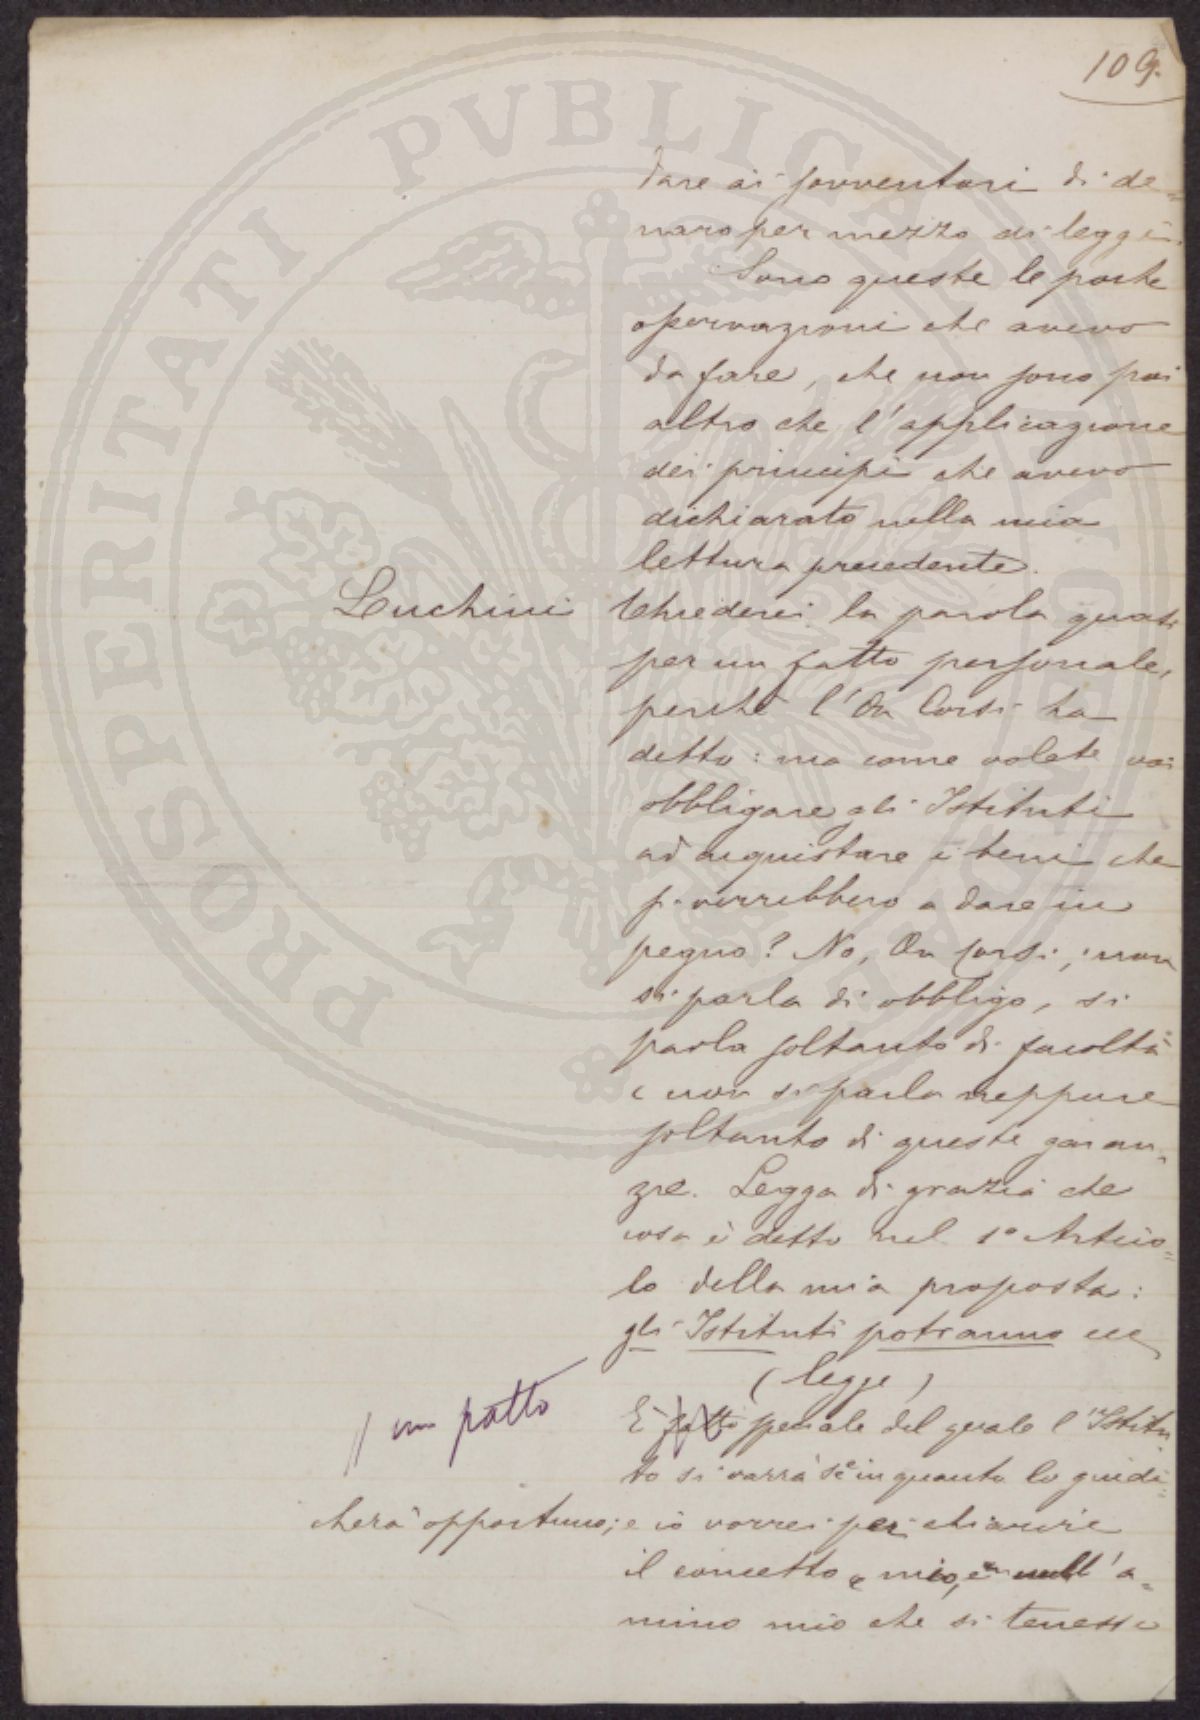 109.
dare ai sovventori di de=
naro per mezzo di leggi.
Sono queste le poche
osservazioni che avevo
da fare, che non sono poi
altro che l'applicazione
dei principi che avevo
dichiarato nella mia
lettura precedente.
Luchini Chiederei la parola quasi
per un fatto personale,
perchè l'On Corsi ha
detto: ma come volete voi
obbligare gli Istituti
ad acquistare i beni che
si verrebbero a dare in
pegno? No, On Corsi, non
si parla di obbligo, si
parla soltanto di facoltà
e non si parla neppure
soltanto di queste garan=
zie. Legga di grazia che
cosa è detto nel 1° Artico=
lo della mia proposta:
gli Istituti potranno ecc
(legge)
// un patto
E' patto speciale del quale l'Istitu
to si varrà se in quanto lo giudi=
cherà opportuno; e io vorrei per chiarire
il concetto e mio, nell'a=
nimo mio che si tenesse
PROSPERITATI PVBLICAE